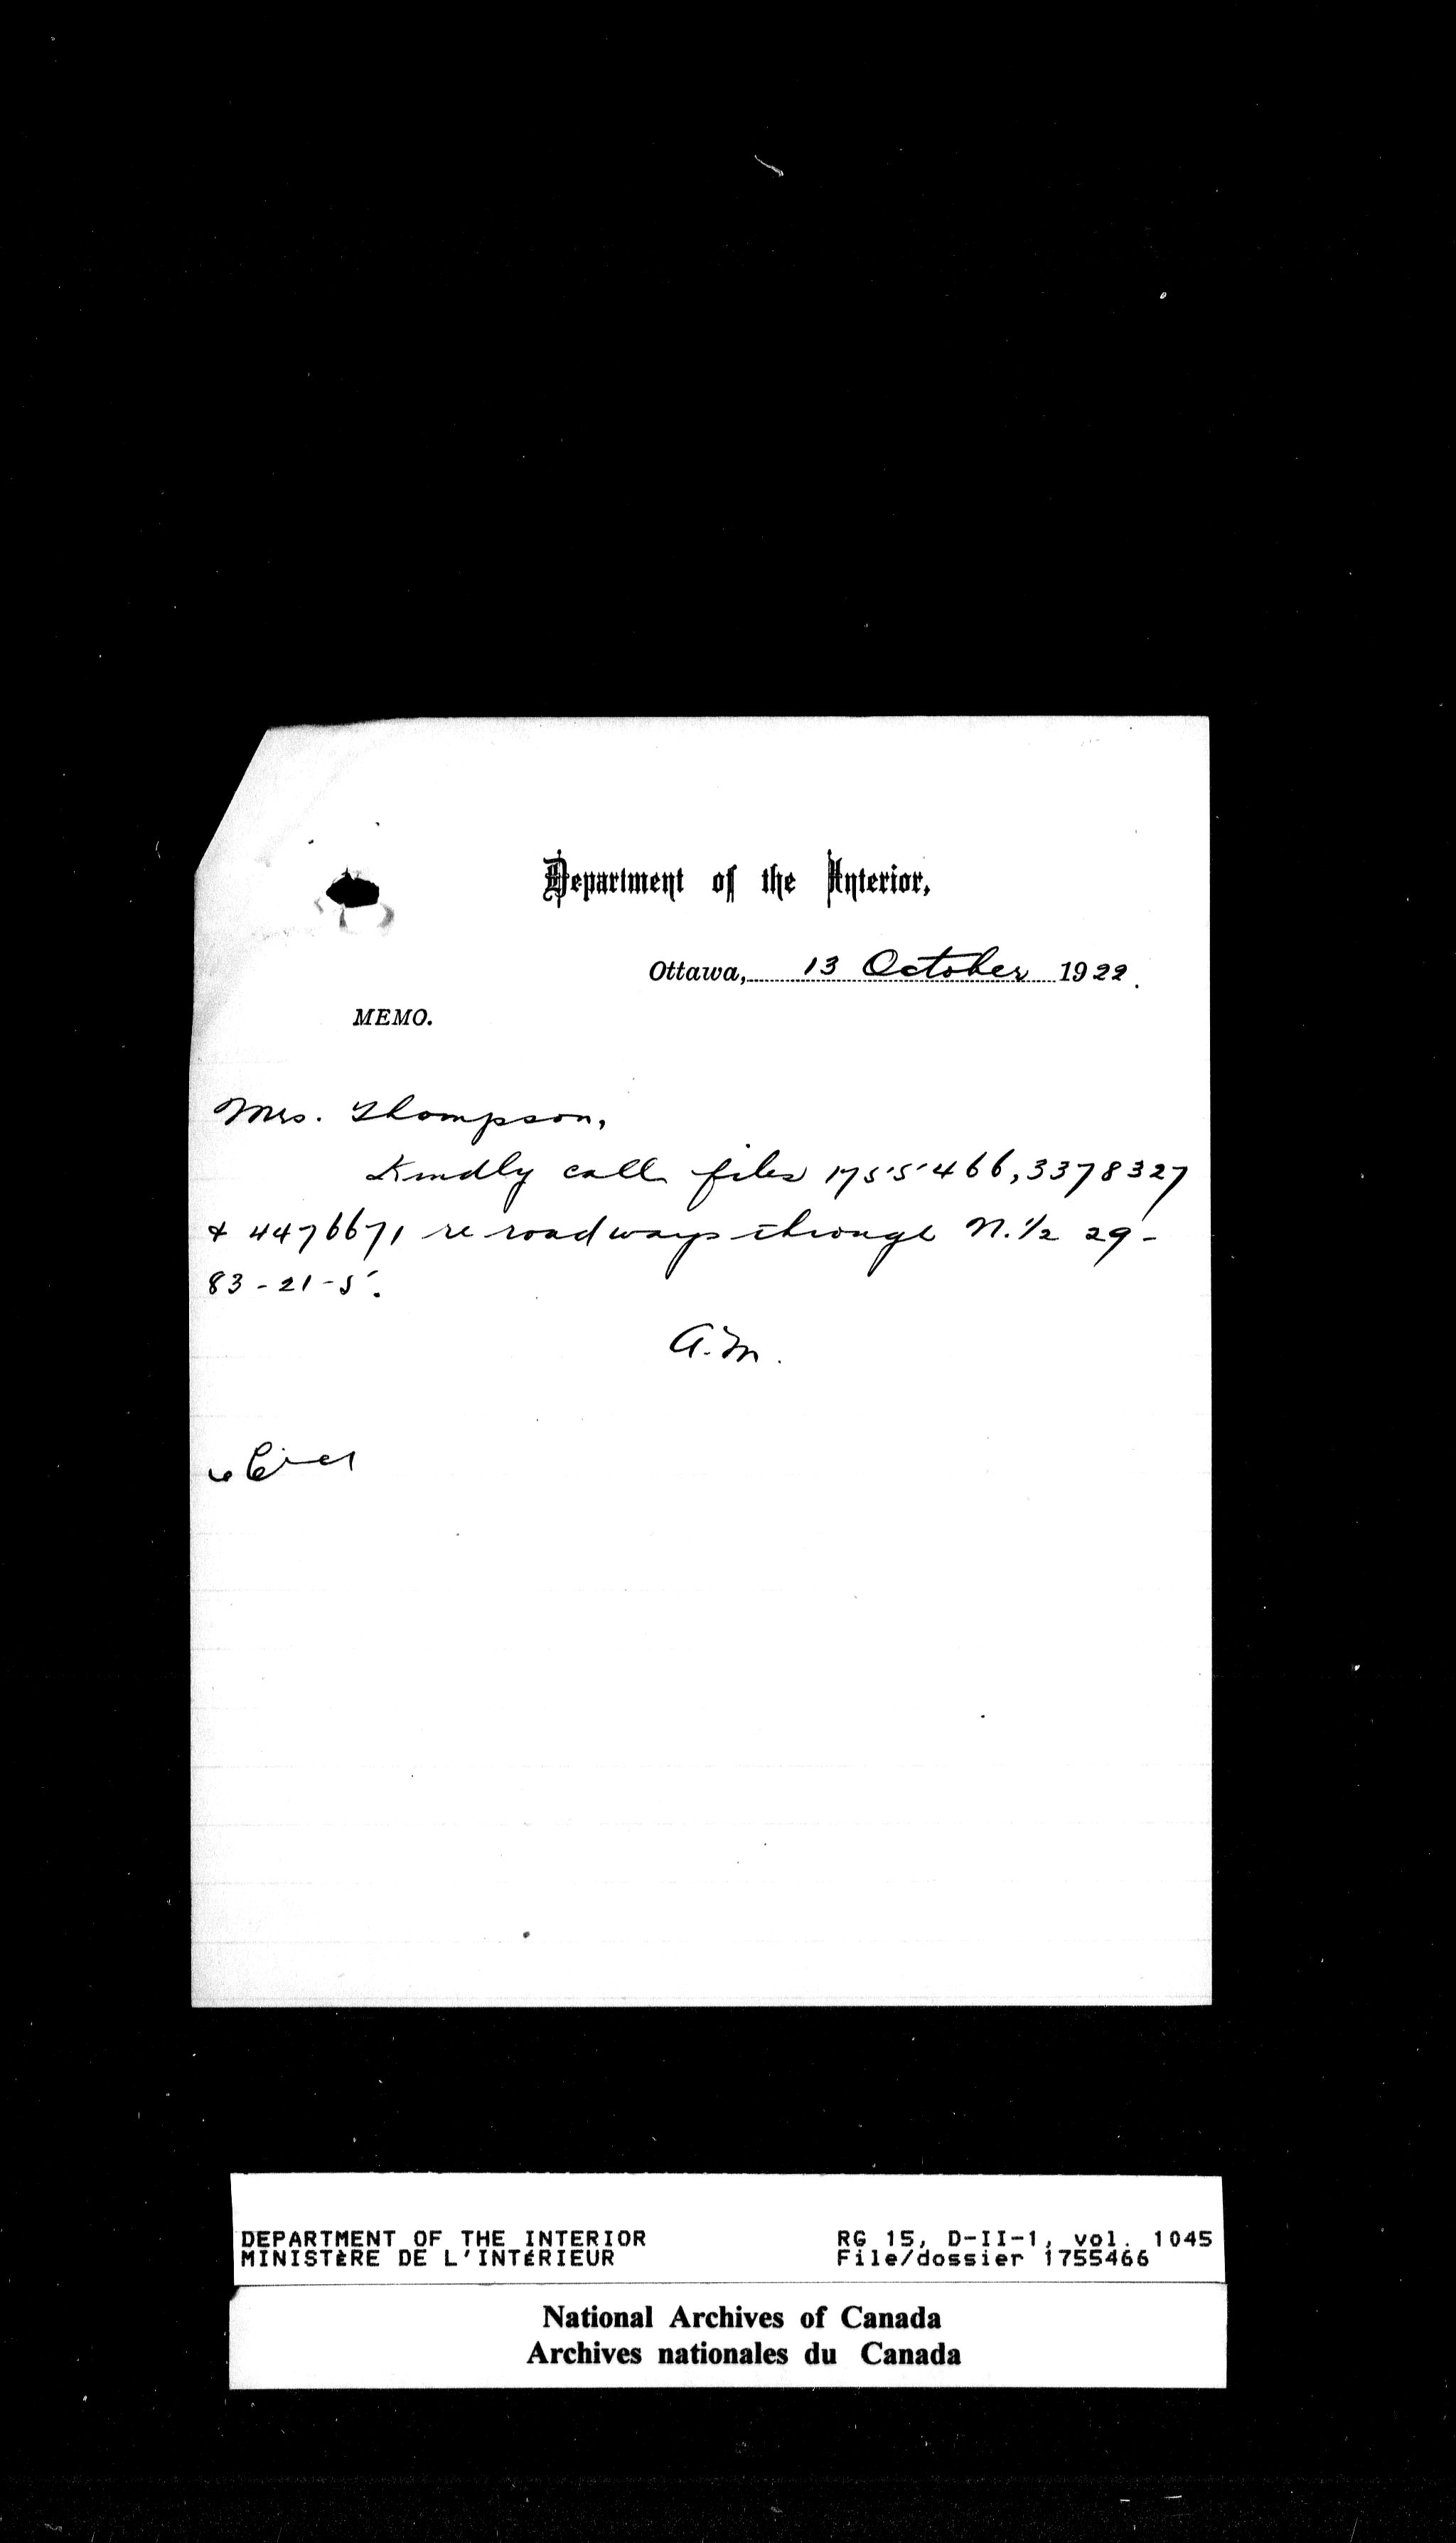 Department of the Interior,
Ottawa, 13 October 1922.
MEMO.
Mrs. Thompson,
Kindly call files 1755466, 3378327
& 4476671 re roadways through N. 1/2 29-
83-21-5.
A.M.
DEPARTMENT OF THE INTERIOR RG 15, D-II-1, vol. 1045
MINISTÈRE DE L'INTÉRIEUR File/dossier 1755466
National Archives of Canada
Archives nationales du Canada